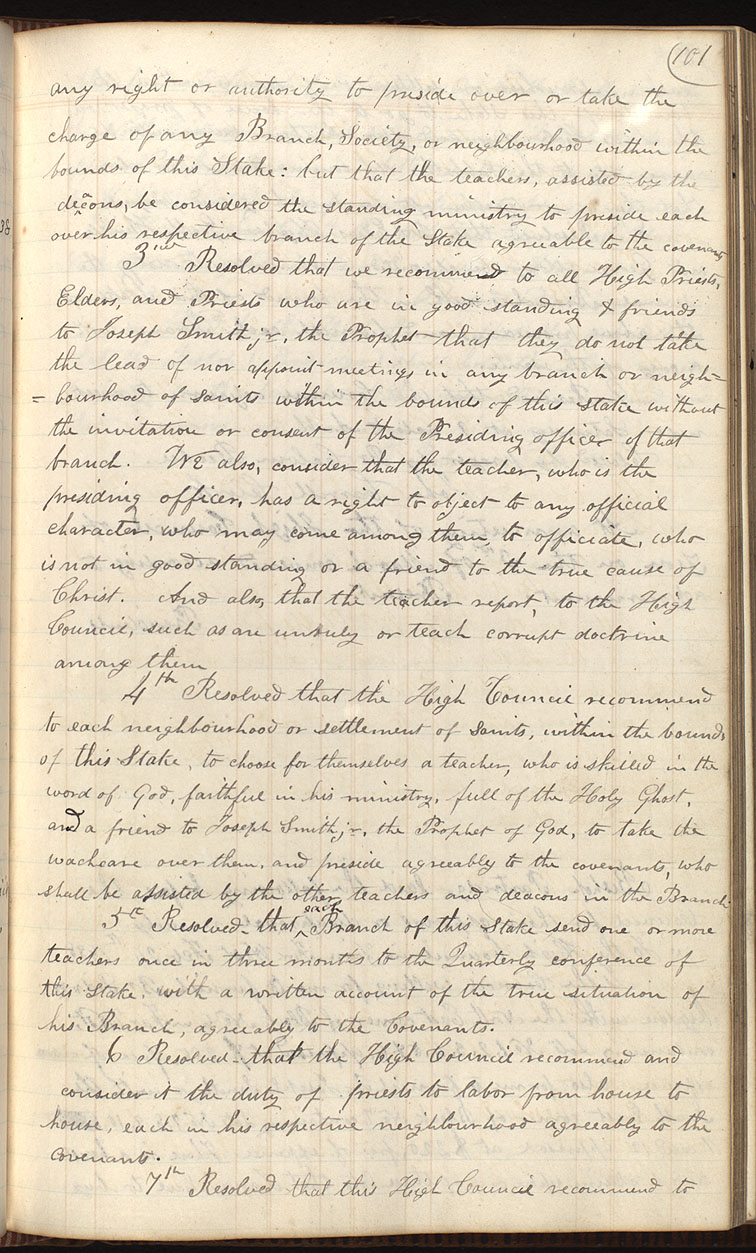 101
any right or authority to preside over or take the
charge of any Branch, Society, or neighbourhood within the
bounds of this Stake: but that the teachers, assisted by the
deacons, be considered the standing ministry to preside each
over his respective branch of the Stake agreeable to the covenants
3rd Resolved that we recommend to all High Priests,
Elders, and Priests who are in good standing & friends
to Joseph Smith jr, the Prophet that they do not take
the lead of nor appoint meetings in any branch or neigh=
=bourhood of saints within the bounds of this stake without
the invitation or consent of the Presiding officer of that
branch. We also, consider that the teacher, who is the
presiding officer, has a right to object to any official
character, who may come among them, to officiate, who
is not in good standing or a friend to the true cause of
Christ. And also, that the teacher report, to the High
Council, such as are unruly or teach corrupt doctrine
among them
4th Resolved that the High Council recommend
to each neighbourhood or settlement of saints, within the bounds
of this Stake, to choose for themselves a teacher, who is skilled in the
word of God, faithful in his ministry, full of the Holy Ghost,
and a friend to Joseph Smith jr, the Prophet of God, to take the
wachcare over them, and preside agreeably to the covenants, who
shall be assisted by the other teachers and deacons in the Branch
5th Resolved that each Branch of this Stake send one or more
teachers once in three months to the Quarterly conference of
this Stake, with a written account of the true situation of
his Branch, agreeably to the Covenants.
6 Resolved that the High Council recommend and
consider it the duty of priests to labor from house to
house, each in his respective neighbourhood agreeably to the
covenants.
7th Resolved that this High Council recommend to